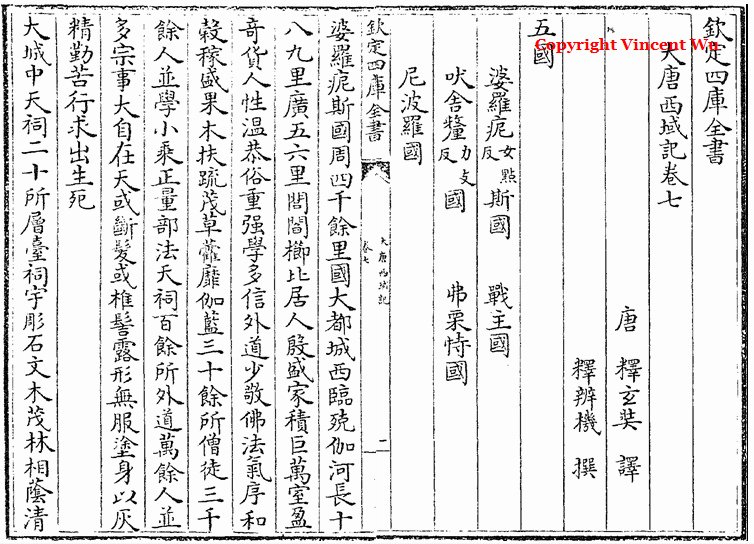 欽定四庫全書
Copyright Vincent Wu
大唐西域記卷七
唐 釋玄奘 譯
釋辨機 撰
五國
婆羅痆女黠反斯國 戰主國
吠舍釐力支反國 弗栗恃國
尼波羅國
欽定四庫全書 大唐西域記 卷七 一
婆羅痆斯國周四千餘里國大都城西臨殑伽河長十
八九里廣五六里閭閻櫛比居人殷盛家積巨萬室盈
奇貨人性溫恭俗重强學多信外道少敬佛法氣序和
榖稼盛果木扶疏茂草靃靡伽藍三十餘所僧徒三千
餘人並學小乘正量部法天祠百餘所外道萬餘人並
多宗事大自在天或斷髮或椎髻露形無服塗身以灰
精勤苦行求出生死
大城中天祠二十所層臺祠宇彫石文木茂林相蔭清